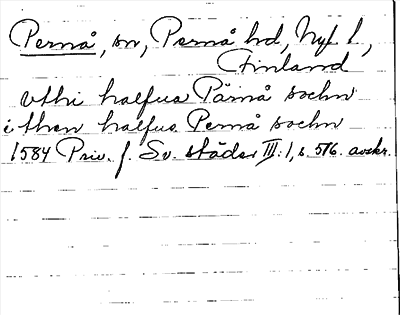 Pernå, sn, Pernå hd, Nyl. l.,
Finland
vthi halfua Pärnå sochn
i then halfua Pernå sochn
1584 Priv. f. Sv. städer III:1, s. 516. avskr.